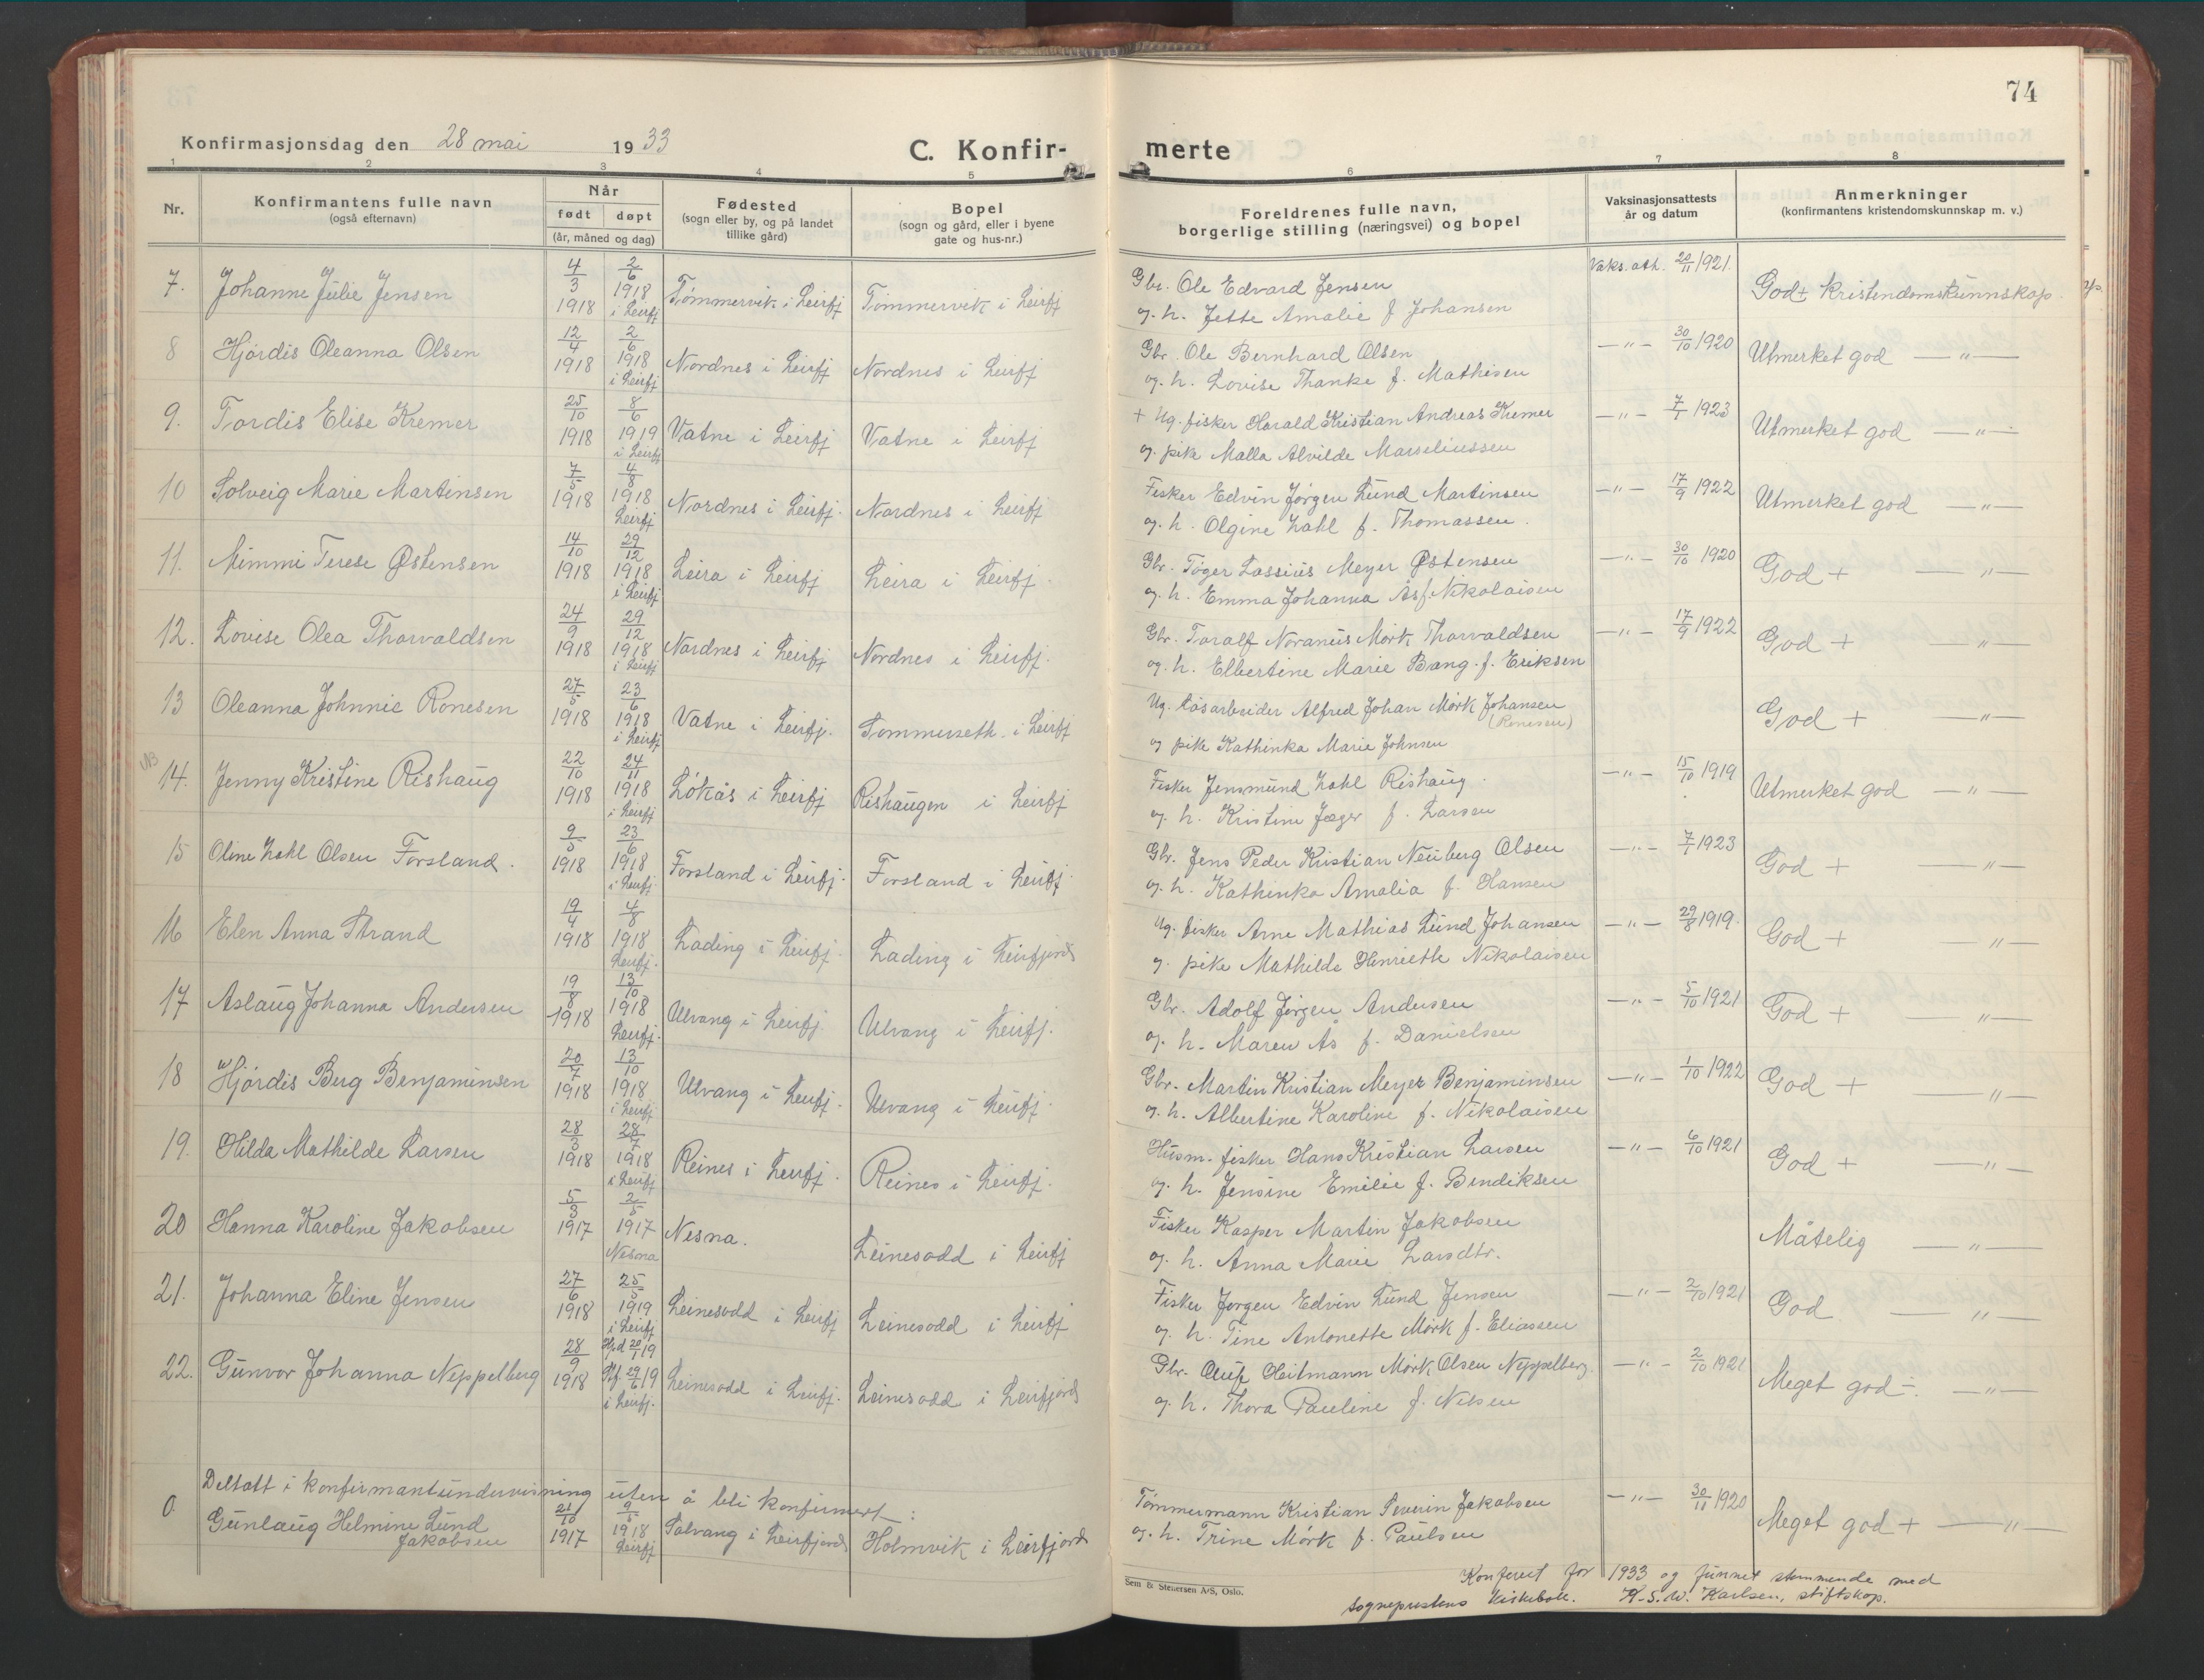 74
Konfirmasjonsdag den 28 mai 1933
C. Konfir-
merte
1 2 3 4 5
6 7 8
Nr.
Konfirmantens fulle navn
(også efternavn)
Når
født døpt
(år, måned og dag)
Fødested
(sogn eller by, og på landet
tillike gård)
Bopel
(sogn og gård, eller i byene
gate og hus-nr.)
Foreldrenes fulle navn,
borgerlige stilling (næringsvei) og bopel
Vaksinasjonsattests
år og datum
Anmerkninger
(konfirmantens kristendomskunnskap m. v.)
7. Johanne Julie Jensen 4/3 1918 2/6 1918 i Leirfj Tømmervik i Leirfj Tømmervik i Leirfj
Gbr. Ole Edvard Jensen Vaks. att. 20/11 1921. God + kristendomskunnskap.
og h. Jette Amalie f Johansen
8 Hjørdis Oleanna Olsen 12/4 1918 2/6 1918 i Leirfj Nordnes i Leirfj Nordnes i Leirfj
Gbr. Ole Bernhard Olsen —"— 30/10 1920 Utmerket god —"—
og. h. Lovise Thanke f. Mathisen
9. Tordis Elise Kremer 25/10 1918 8/6 1919 i Leirfj Vatne i Leirfj Vatne i Leirfj
+ Ug. fisker Harald Kristian Andreas Kremer —"— 7/1 1923 Utmerket god —"—
og. pike Malla Alvilde Marseliussen
10 Solveig Marie Martinsen 7/5 1918 4/8 1918 Leirfj Nordnes i Leirfj. Nordnes i Leirfj
Fisker Edvin Jørgen Lund Martinsen —"— 17/9 1922 Utmerket god —"—
og. h. Olgine Zahl f. Thomassen.
11. Mimmi Terese Østensen 14/10 1918 29/12 1918 i Leirfj Leira i Leirfj Leira i Leirfj.
Gbr. Tøger Lassius Meyer Østensen —"— 30/10 1920 God + —"—
og. h. Emma Johanna Ås f. Nikolaisen
12. Lovise Olea Thorvaldsen 24/9 1918 29/12 1918 i Leirfj Nordnes i Leirfj Nordnes i Leirfj.
Gbr. Toralf Noranius Mørk Thorvaldsen —"— 17/9 1922 God + —"—
og. h. Elbertine Marie Bang. f. Eriksen
13 Oleanna Johnnie Ronesen 27/5 1918 23/6 1918 i Leirfj Vatne i Leirfj. Tømmerseth. i Leirfj
Ug. løsarbeider Alfred Johan Mørk Johansen God + —"—
(Ronesen)
og pike Kathinka Marie Johnsen
NB
14. Jenny Kristine Rishaug 22/10 1918 24/11 1918 i Leirfj Løkås i Leirfj Rishaugen i Leirfj
Fisker Jensmund Zahl Rishaug. —"— 15/10 1919 Utmerket god —"—
og. h. Kristine Jæger f. Larsen
15 Oline Zahl Olsen Forsland. 9/5 1918 23/6 1918 i Leirfj. Forsland i Leirfj. Forsland i Leirfj.
Gbr. Jens Peder Kristian Neuberg Olsen —"— 7/1 1923 God + —"—
og. h. Kathinka Amalia f. Hansen
16 Elen Anna Strand 19/4 1918 4/8 1918 Leirfj. Lading i Leirfj. Lading i Leirfjord
Ug. fisker Arne Mathias Lund Johansen —"— 29/8 1919. God + —"—
og. pike Mathilde Henriette Nikolaisen
17 Aslaug Johanna Andersen 19/8 1918 13/10 1918 Leirfj. Ulvang i Leirfj. Ulvang i Leirfj.
Gbr. Adolf Jørgen Andersen —"— 5/10 1921 God + —"—
og. h. Maren Ås f. Danielsen
18 Hjørdis Berg Benjaminsen 20/7 1918 13/10 1918 i Leirfj. Ulvang i Leirfj. Ulvang i Leirfj.
Gbr. Martin Kristian Meyer Benjaminsen —"— 1/10 1922 God + —"—
og. h. Albertine Karoline f. Nikolaisen
19. Hilda Mathilde Larsen 28/3 1918 28/7 1918 i Leirfj Reines i Leirfj. Reines i Leirfj.
Husm. fisker Hans Kristian Larsen —"— 6/10 1921 God + —"—
og. h. Jensine Emilie f. Bendiksen
20 Hanna Karoline Jakobsen 5/3 1917 2/5 1917 Nesna Nesna. Leinesodd i Leirfj
Fisker Kasper Martin Jakobsen Måtelig —"—
og. h. Anna Marie Larsdtr.
21. Johanna Eline Jensen 27/6 1918 25/5 1919 i Leirfj Leinesodd i Leirfj Leinesodd i Leirfj
Fisker Jørgen Edvin Lund Jensen —"— 2/10 1921 God —"—
og. h. Tine Antonette Mørk f. Eliassen
22. Gunvor Johanna Neppelberg 28/9 1918 Hjd 20/1 19 Kf 29/6 19 i Leirfj. Leinesodd i Leirfj. Leinesodd i Leirfjord
Gbr. Oluf Heitmann Mørk Olsen Neppelberg. —"— 2/10 1921 Meget god ÷. —"—
og. h. Thora Pauline f. Nilsen
Deltatt i konfirmantundervisning uten å bli konfirmert:
0. Gunlaug Helmine Lund Jakobsen 21/10 1917 9/5 1918 Leirfj Solvang i Leirfjord Holmvik i Leirfjord
Tømmermann Kristian Severin Jakobsen —"— 30/11 1920 Meget god + —"—
og. h. Trine Mørk f. Paulsen
Sem & Stenersen A/S, Oslo.
Konferert for 1933 og funnet stemmende med
sogneprestens kirkebok. H. S. W. Karlsen, stiftskap.